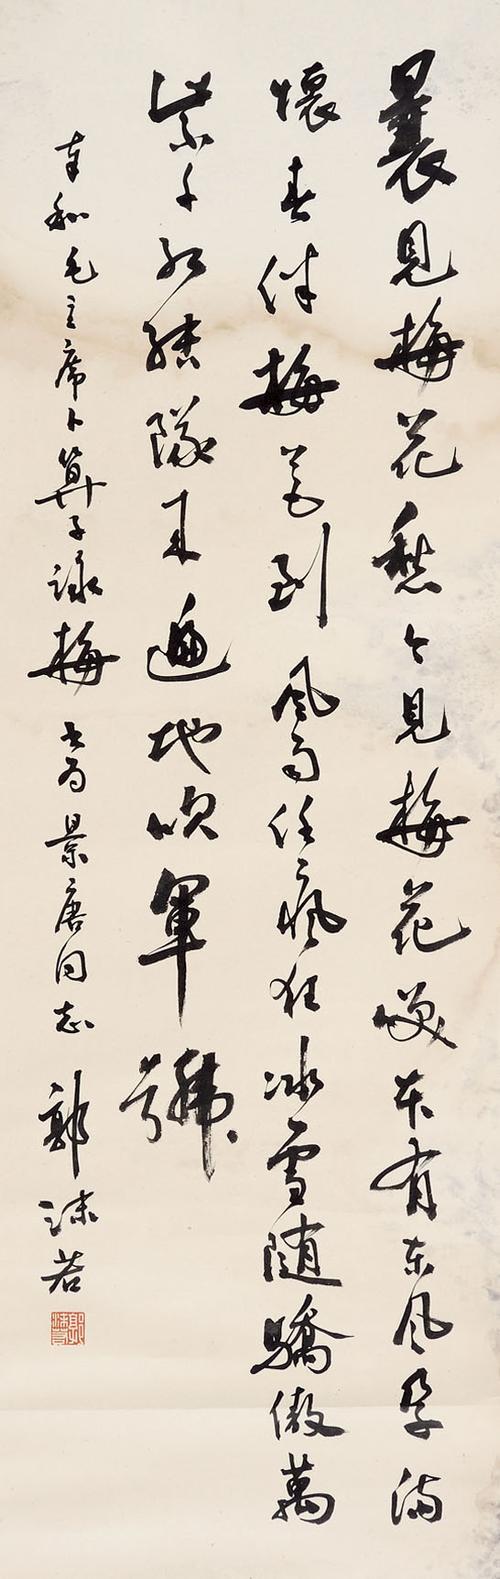 曩見梅花愁今見梅花咲本有东風孕滿
懷春伴梅花到風雨任瘋狂冰雪随驕傲萬
紫千紅結隊来遍地吹軍號
奉和毛主席卜算子詠梅 書為景唐同志 郭沫若
郭沫若